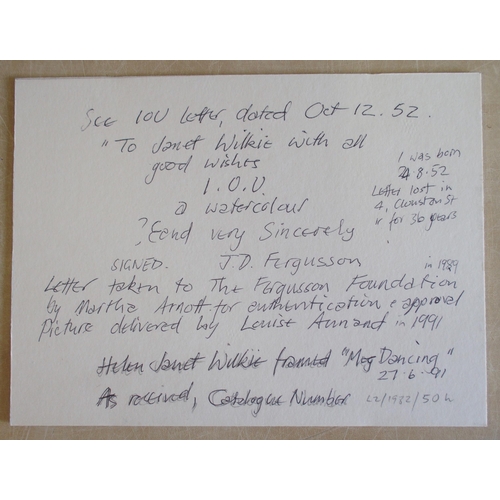 See IOU Letter, dated Oct 12.52.
"To Janet Wilkie with all
good wishes
I.O.U.
a watercolour
? Eand very Sincerely
SIGNED. J.D. Fergusson
I was born
24.8.52
Letter lost in
4, Clouston St
" for 36 years
in 1989
Letter taken to The Fergusson Foundation
by Martha Arnott for authentication & approval
Picture delivered by Louise Annand in 1991
Helen Janet Wilkie framed "Meg Dancing"
27.6.91
As received, Catalogue Number LL/1982/50